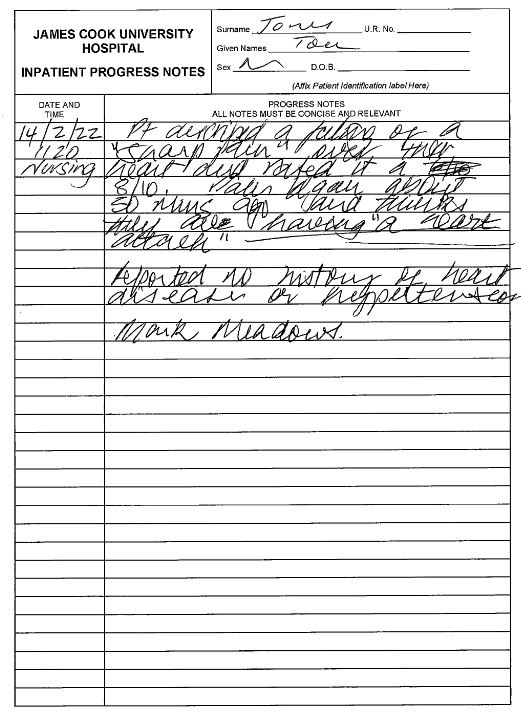 JAMES COOK UNIVERSITY
HOSPITAL
INPATIENT PROGRESS NOTES
Surname Jones U.R. No.
Given Names Tom
Sex M D.O.B.
(Affix Patient Identification label Here)
DATE AND
TIME
PROGRESS NOTES
ALL NOTES MUST BE CONCISE AND RELEVANT
14/2/22 Pt described a feeling of a
1120 "sharp pain" over their
Nursing heart and rated it a
8/10. Pain began about
50 mins ago and thinks
they are having "a heart
attack"
reported no history of heart
disease or hyppertension
Mark Meadows.